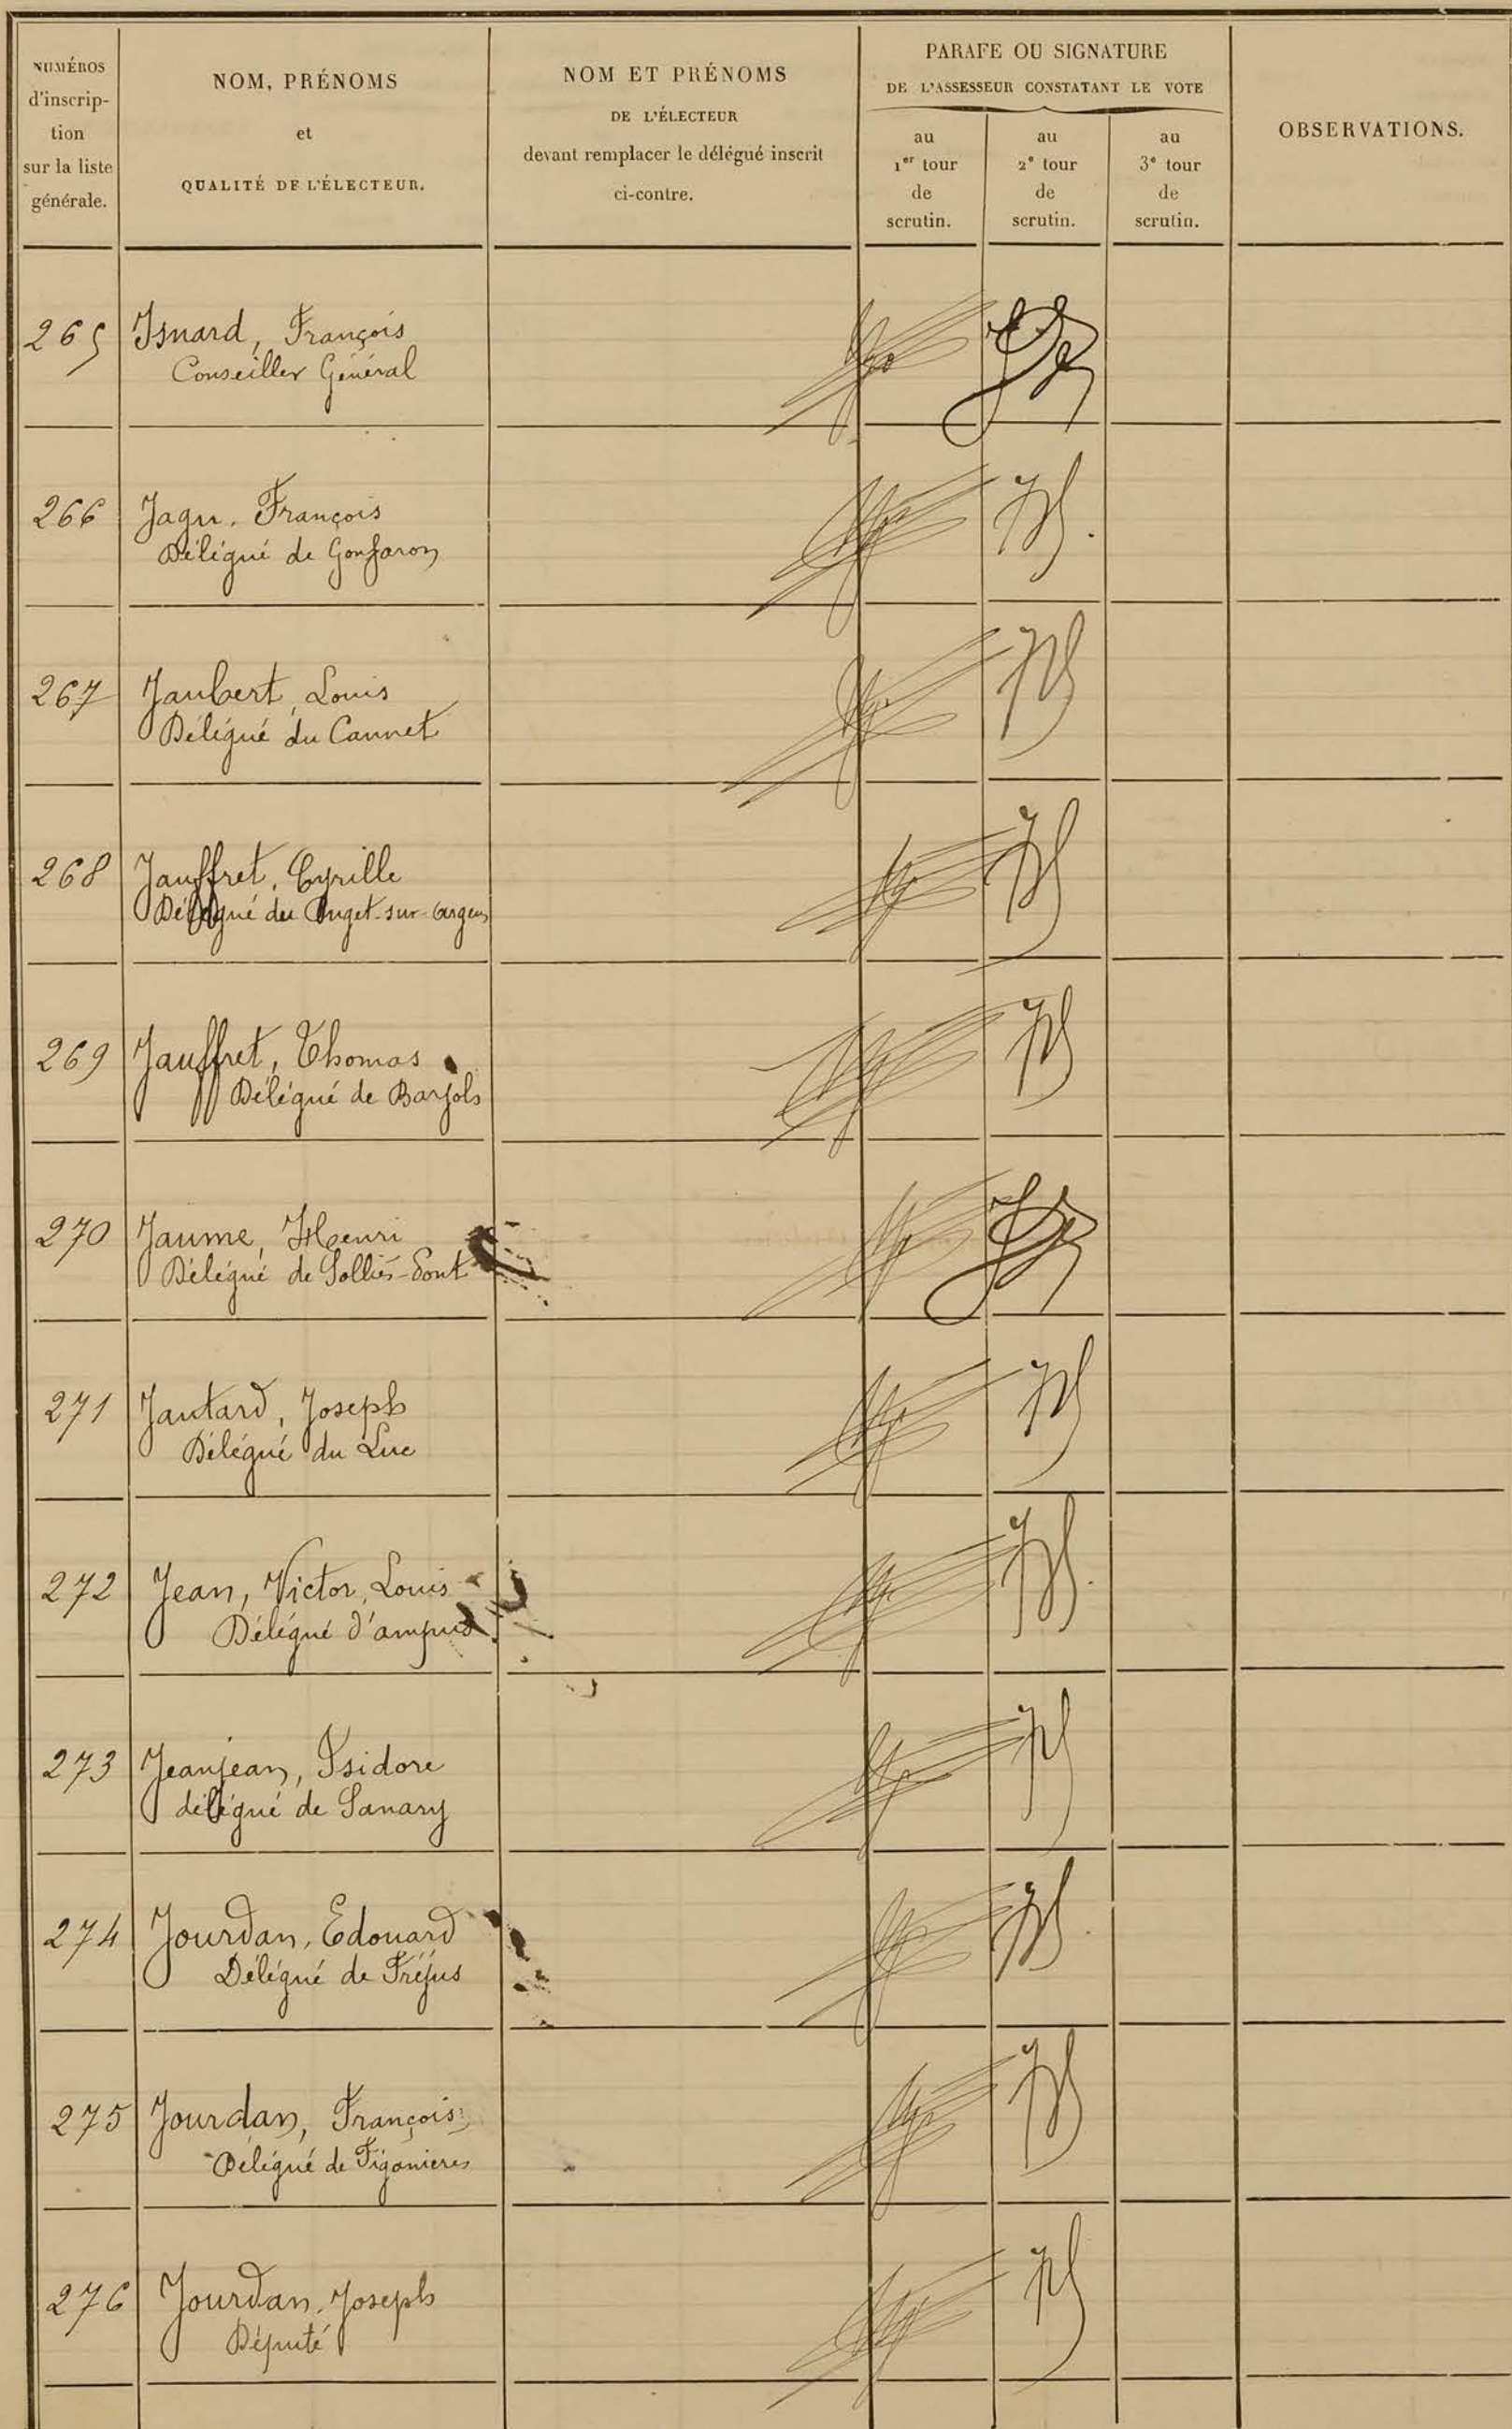 NUMÉROS
d'inscrip-
tion
sur la liste
générale.
NOM, PRÉNOMS
et
QUALITÉ DE L'ÉLECTEUR.
NOM ET PRÉNOMS
DE L'ÉLECTEUR
devant remplacer le délégué inscrit
ci-contre.
PARAFE OU SIGNATURE
DE L'ASSESSEUR CONSTATANT LE VOTE
au
1er tour
de
scrutin.
au
2e tour
de
scrutin.
au
3e tour
de
scrutin.
OBSERVATIONS.
265 Isnard, François
Conseiller Général
266 Jagu, François
Délégué de Gonfaron
267 Jaubert, Louis
Délégué du Cannet
268 Jauffret, Cyrille
Délégué du Puget-sur-Argens
269 Jauffret, Thomas
Délégué de Barjols
270 Jaume, Henri
Délégué de Solliès-Pont
271 Jautard, Joseph
Délégué du Luc
272 Jean, Victor, Louis
Délégué d'ampus
273 Jeanjean, Isidore
délégué de Sanary
274 Jourdan, Edouard
Délégué de Fréjus
275 Jourdan, François
Délégué de Figanières
276 Jourdan, Joseph
Député